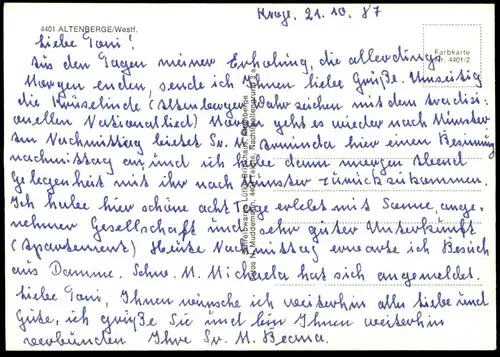 4401 ALTENBERGE/Westf.
Kroge. 21.10.87
Farbkarte
Nr. 4401/2
Liebe Toni!
Aus den Tagen meiner Erholung, die allerdings
Morgen enden, sende ich Ihnen liebe Grüße. Umseitig
die Krüselinde (Altenberger Wahrzeichen mit dem tradisi-
onellen Nationallied) Morgen geht es wieder nach Münster
am Nachmittag bietet Sr. M. hier einen Besinnung
nachmittag an, und ich habe dann morgen Abend
Gelegenheit mit ihr nach Münster zurückzukommen.
Ich habe hier schöne acht Tage erlebt mit Sonne, ange-
nehmer Gesellschaft und sehr guter Unterkunft
(Apartement) Heute Nachmittag erwarte ich Besuch
aus Damme. Schw. M. Michaela hat sich angemeldet.
Liebe Toni, Ihnen wünsche ich weiterhin alles Liebe und
Gute, ich grüße Sie und bin Ihnen weiterhin
verbunden Ihre Sr. M.